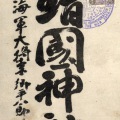 靖國神社
海軍大將東郷平八郎